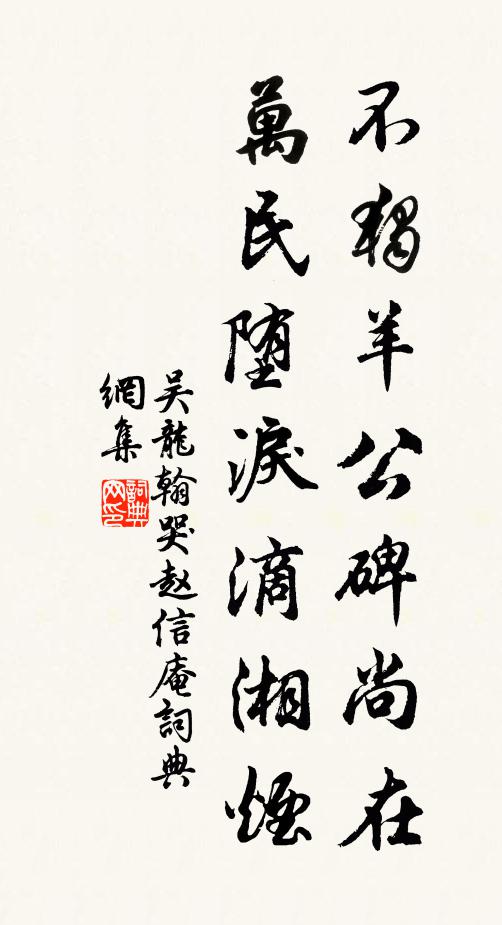 不獨羊公碑尚在
萬民堕淚滴湘煙
吴龍翰哭赵信庵詞典
網集
詞典网印